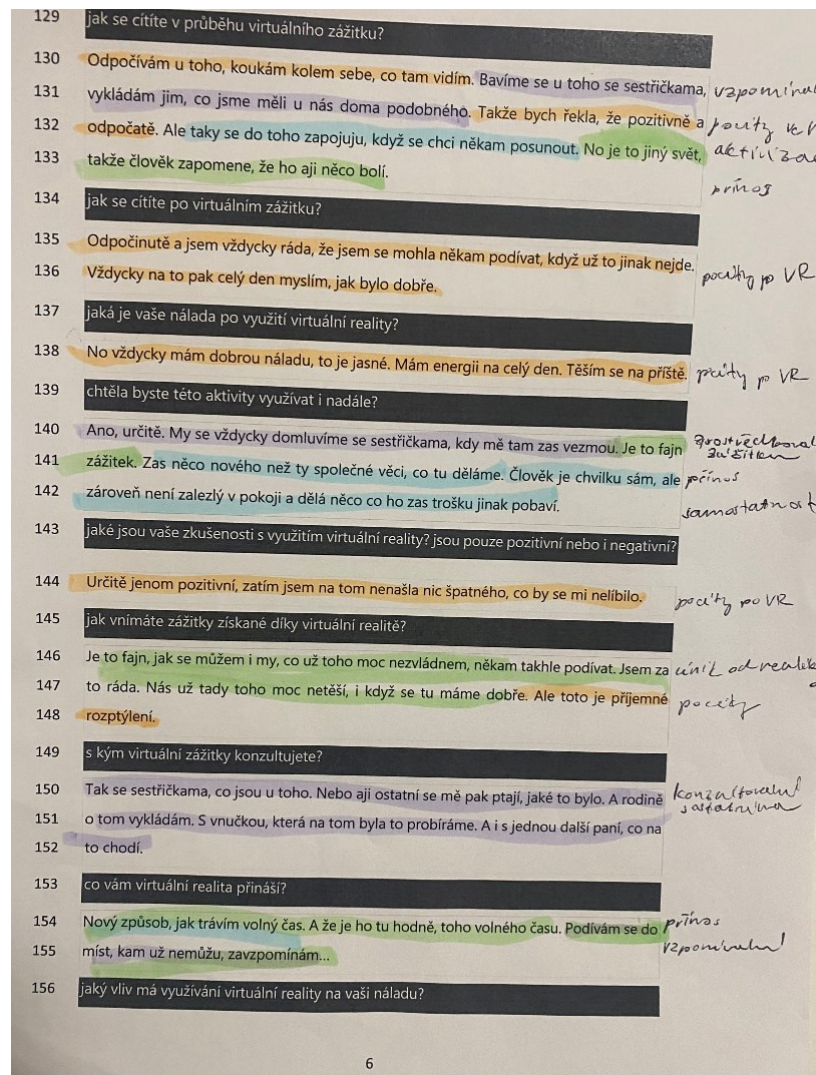 129 jak se cítíte v průběhu virtuálního zážitku?
130 Odpočívám u toho, koukám kolem sebe, co tam vidím. Bavíme se u toho se sestřičkama,
131 vykládám jim, co jsme měli u nás doma podobného. Takže bych řekla, že pozitivně a
132 odpočatě. Ale taky se do toho zapojuju, když se chci někam posunout. No je to jiný svět,
133 takže člověk zapomene, že ho aji něco bolí.
přínos
134 jak se cítíte po virtuálním zážitku?
135 Odpočinutě a jsem vždycky ráda, že jsem se mohla někam podívat, když už to jinak nejde.
136 Vždycky na to pak celý den myslím, jak bylo dobře. pocity po VR
137 jaká je vaše nálada po využití virtuální reality?
138 No vždycky mám dobrou náladu, to je jasné. Mám energii na celý den. Těším se na příště. pocity po VR
139 chtěla byste této aktivity využívat i nadále?
140 Ano, určitě. My se vždycky domluvíme se sestřičkama, kdy mě tam zas vezmou. Je to fajn
141 zážitek. Zas něco nového než ty společné věci, co tu děláme. Člověk je chvilku sám, ale přínos
142 zároveň není zalezlý v pokoji a dělá něco co ho zas trošku jinak pobaví. samostatnost
143 jaké jsou vaše zkušenosti s využitím virtuální reality? jsou pouze pozitivní nebo i negativní?
144 Určitě jenom pozitivní, zatím jsem na tom nenašla nic špatného, co by se mi nelíbilo. pocity po VR
145 jak vnímáte zážitky získané díky virtuální realitě?
146 Je to fajn, jak se můžem i my, co už toho moc nezvládnem, někam takhle podívat. Jsem za únik od
147 to ráda. Nás už tady toho moc netěší, i když se tu máme dobře. Ale toto je příjemné pocity
148 rozptýlení.
149 s kým virtuální zážitky konzultujete?
150 Tak se sestřičkama, co jsou u toho. Nebo aji ostatní se mě pak ptají, jaké to bylo. A rodině
151 o tom vykládám. S vnučkou, která na tom byla to probíráme. A i s jednou další paní, co na
152 to chodí.
153 co vám virtuální realita přináší?
154 Nový způsob, jak trávím volný čas. A že je ho tu hodně, toho volného času. Podívám se do přínos
155 míst, kam už nemůžu, zavzpomínám...
156 jaký vliv má využívání virtuální reality na vaši náladu?
6